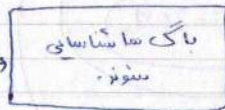 باگ ها شناسایی
شوند.